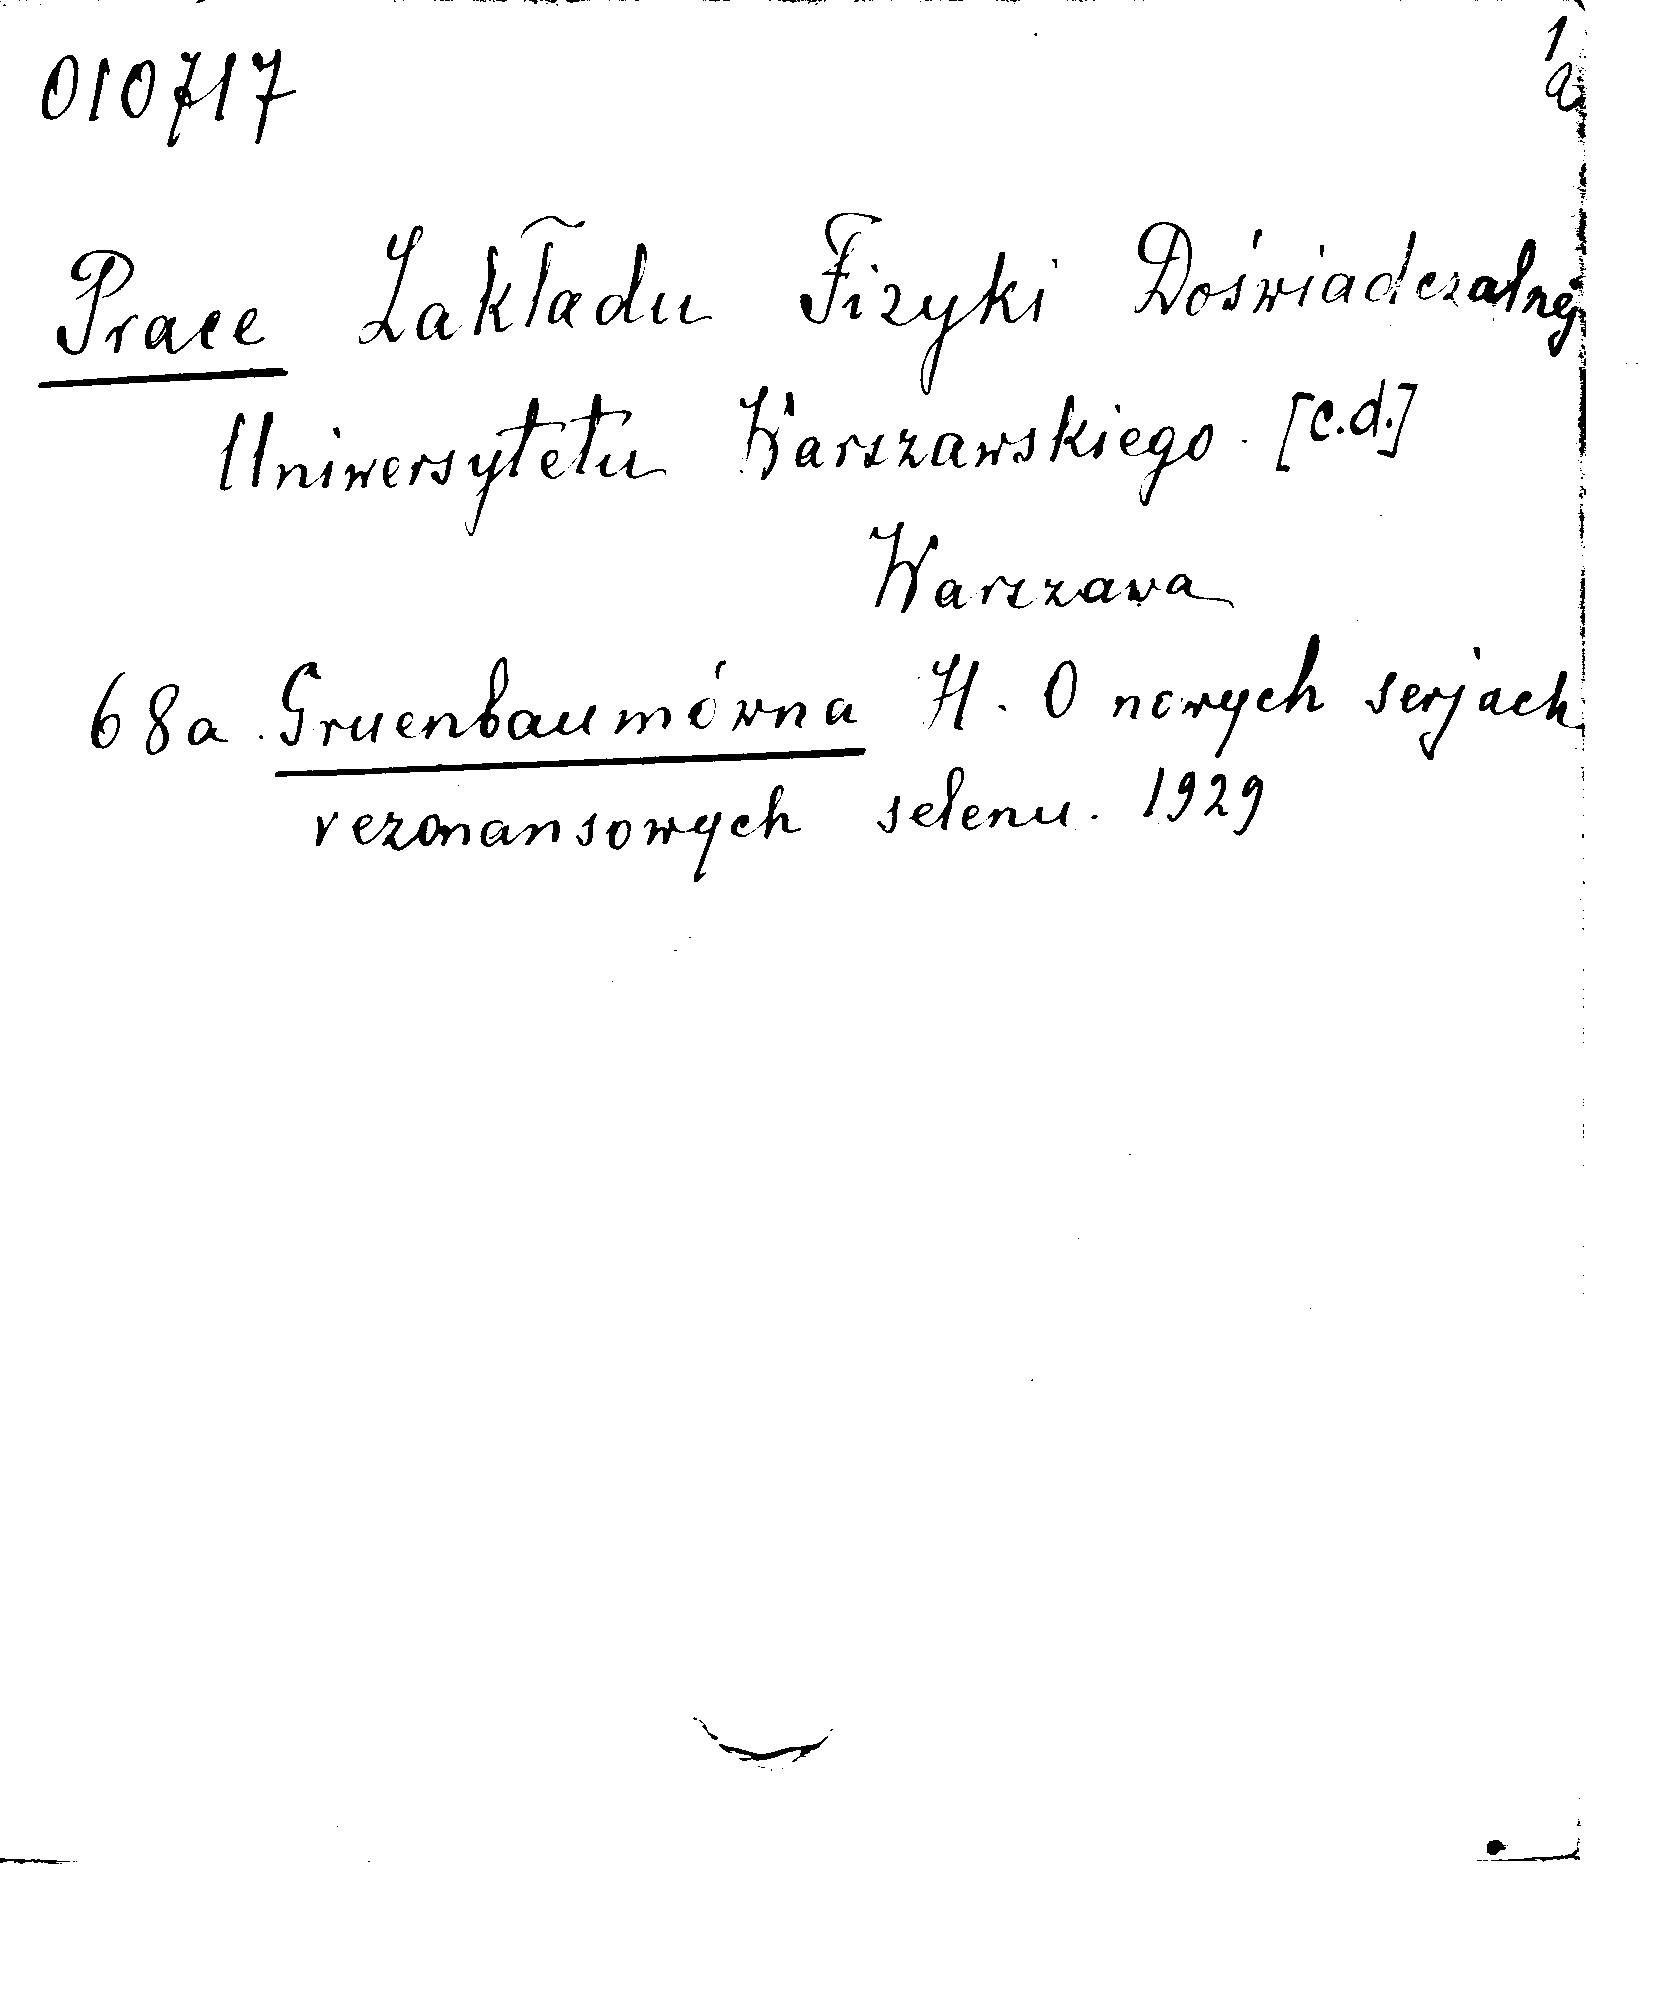 010717
1
a
Prace Zakładu Fizyki Doświadczalnej
Uniwersytetu Warszawskiego. [c.d.]
Warszawa
68a. Gruenbaumówna H. O nowych serjach
rezonansowych selenu. 1929